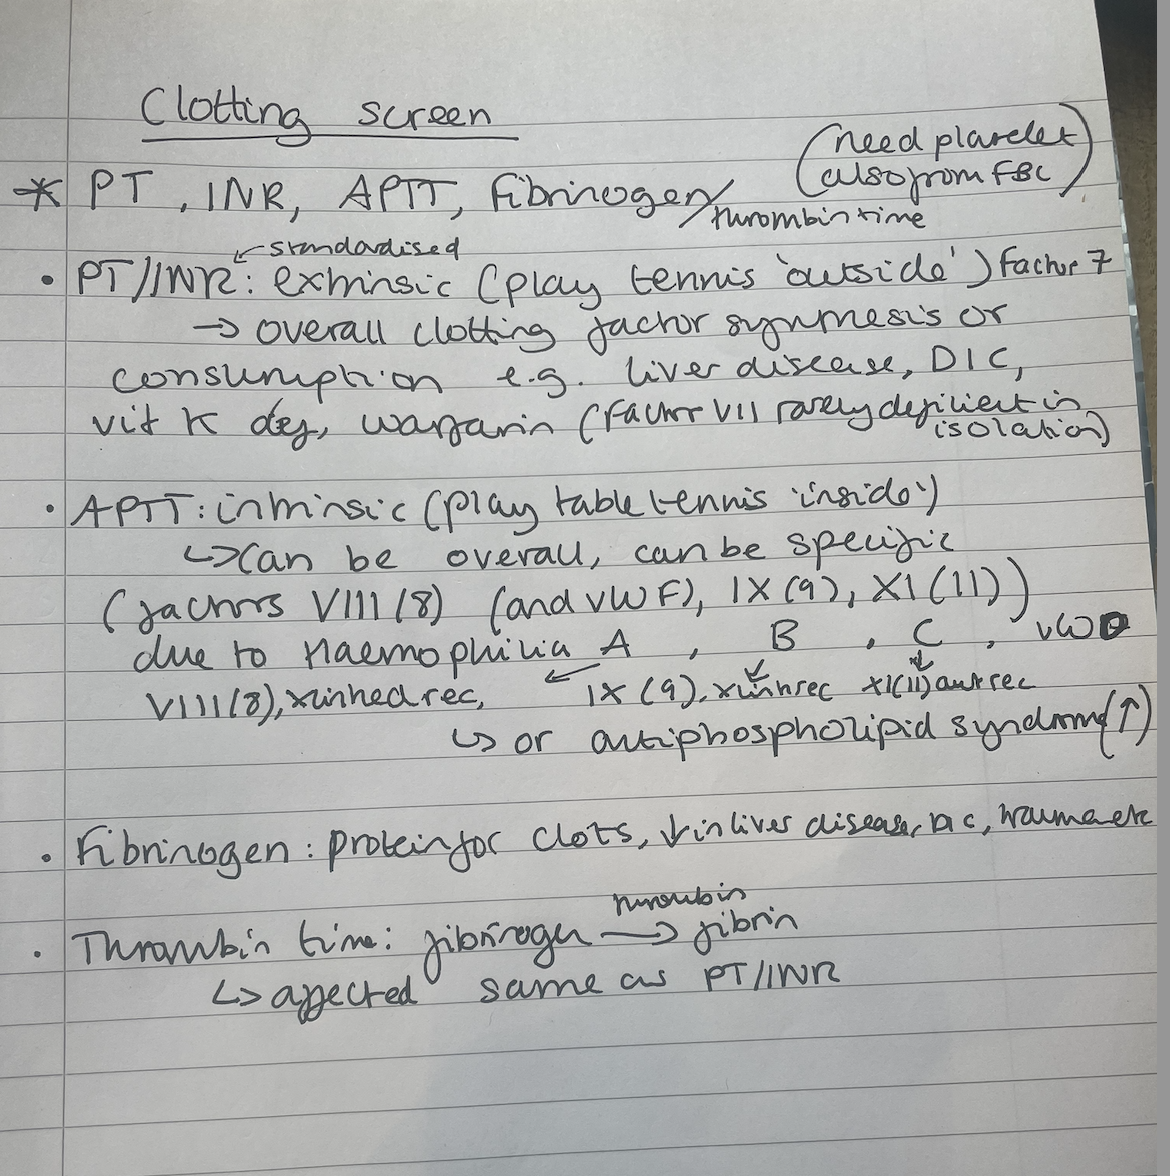 Clotting screen
(need platelet
also from FBC)
* PT, INR, APTT, Fibrinogen/
thrombin time
← standardised
• PT/INR: extrinsic (play tennis 'outside') factor 7
→ overall clotting factor synthesis or
consumption e.g. liver disease, DIC,
vit K def, warfarin (factor VII rarely deficient in
isolation)
• APTT: intrinsic (play table tennis 'inside')
↳ can be overall, can be specific
(factors VIII (8) (and vWF), IX (9), XI (11))
due to Haemophilia A, B, C, vWD
VIII (8), x inhed rec, IX (9), x inh rec XI (11) aut rec
↳ or antiphospholipid syndrome (↑)
• Fibrinogen: protein for clots, ↓ in liver disease, DIC, trauma etc
thrombin
• Thrombin time: fibrinogen → fibrin
↳ affected same as PT/INR